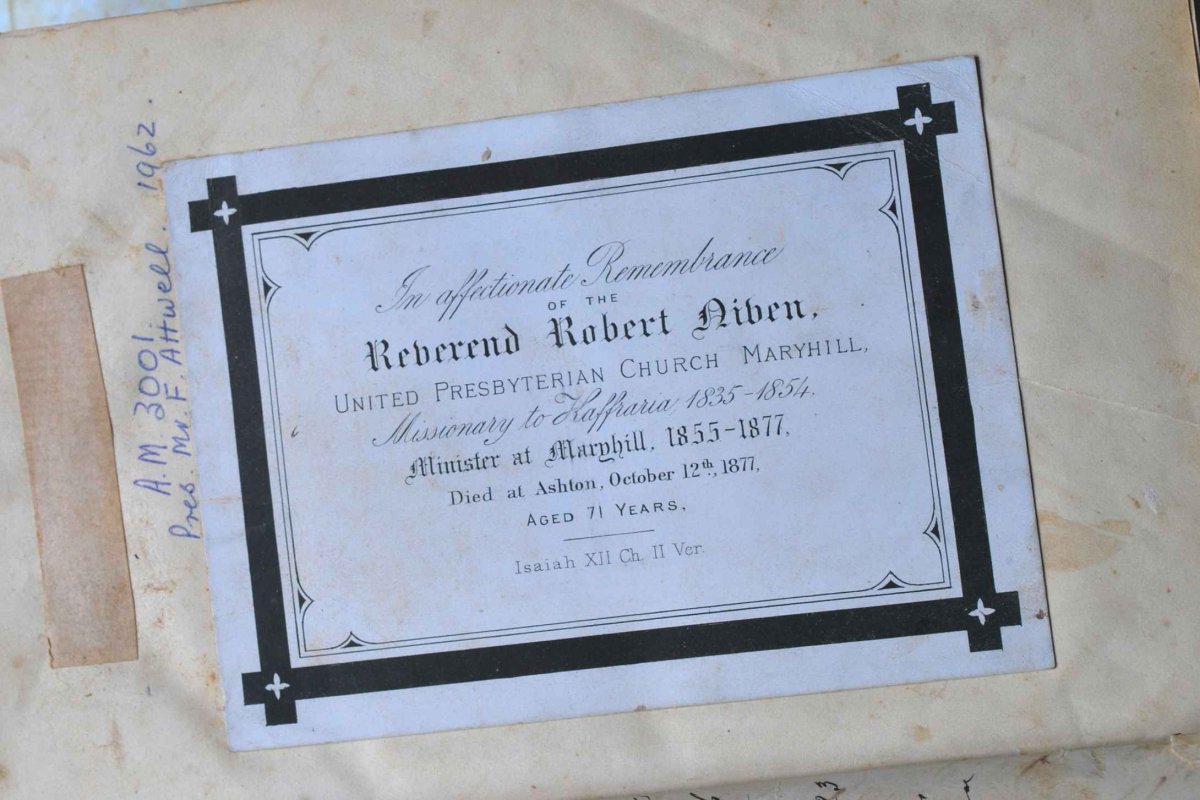 A.M. 3001.
Pres. Mr. F. Attwell. 1962.
In affectionate Remembrance
OF THE
Reverend Robert Niven,
UNITED PRESBYTERIAN CHURCH MARYHILL,
Missionary to Kaffraria 1835-1854.
Minister at Maryhill, 1855-1877,
Died at Ashton, October 12th, 1877,
AGED 71 YEARS,
Isaiah XII Ch. II Ver.